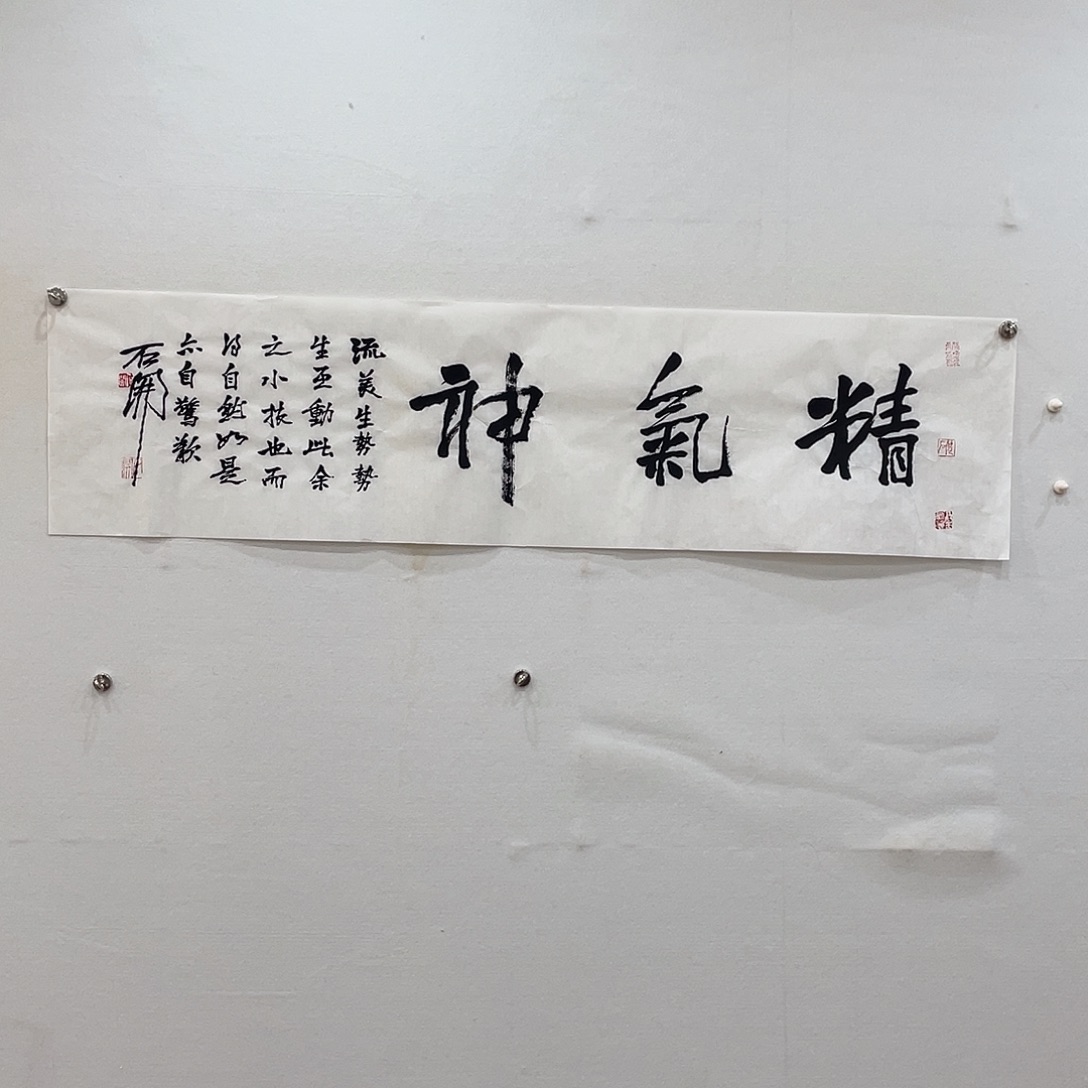 精氣神
流美生勢勢
生至動此余
之小技也而
得自然如是
亦自驚歎
石開